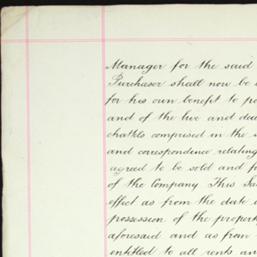 Manager for the said
Purchaser shall now be
for his own benefit to
and of the live and
chattels comprised in the
and correspondence relating
agreed to be sold and
of the Company This
effect as from the date
possession of the
aforesaid and as from
entitled to all rents